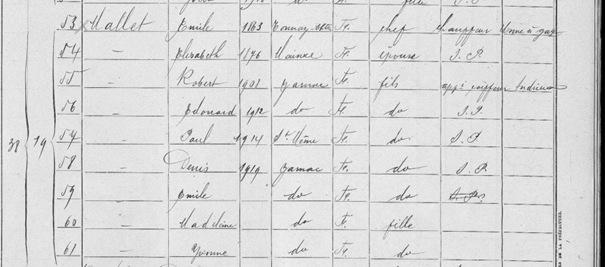 53 Mallet Emile 1863 Tonnay Fr. chef chauffeur Usine à gaz
54 — Elisabeth 1876 Fr. épouse S.P.
55 — Robert 1901 Jarnac Fr. fils coiffeur
56 — Edouard 1912 do Fr. do S.P.
38 19 57 — Paul 1914 Fr. do S.P.
58 — Denis 1919 Jarnac Fr. do S.P.
59 — Emile do Fr. do S.P.
60 — Madeleine do Fr. fille
61 — Yvonne do Fr. do